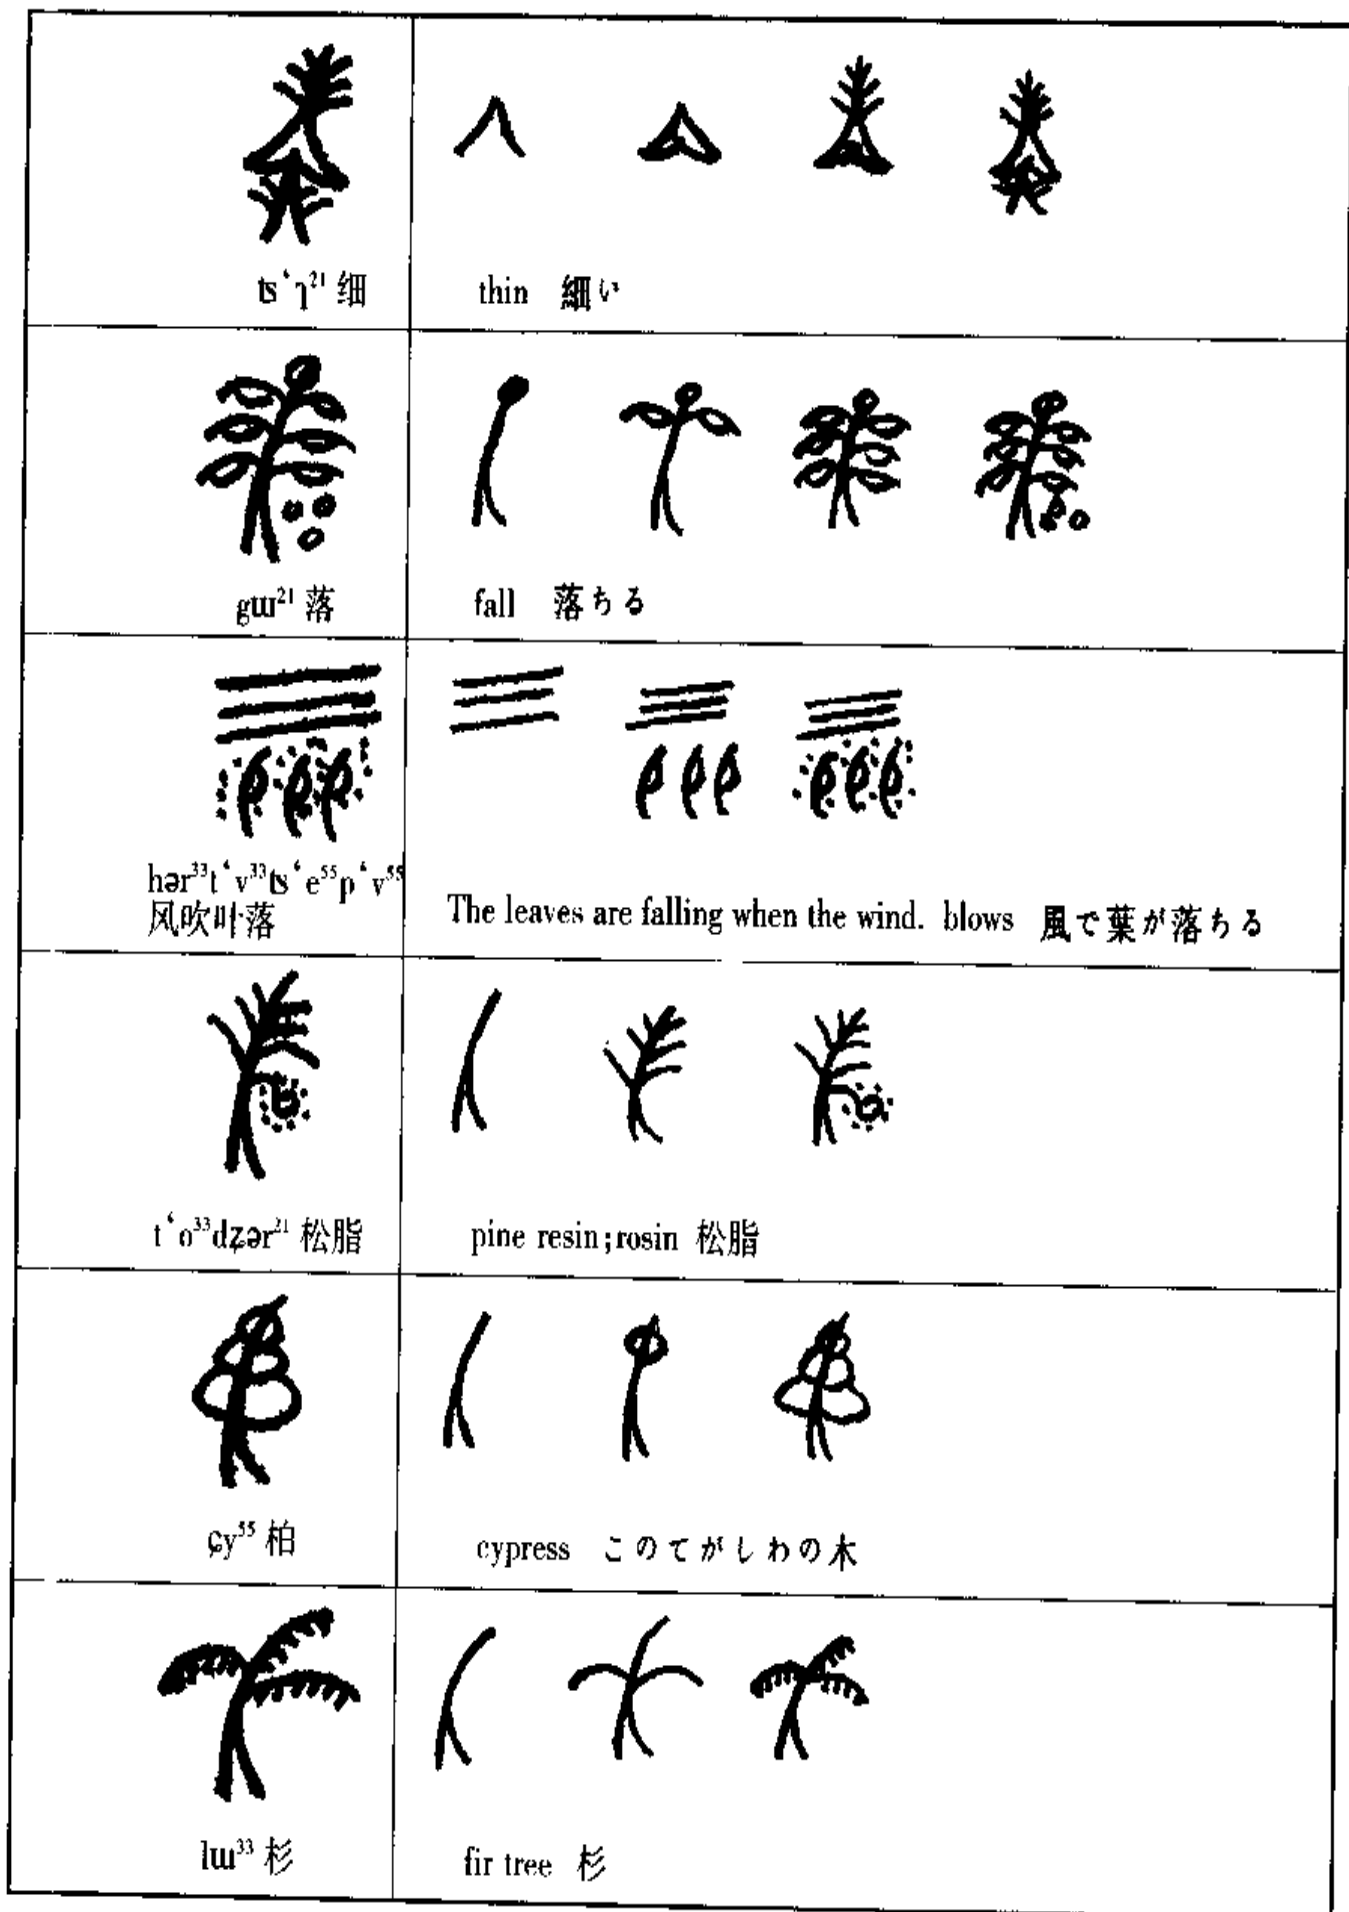 tsʻɿ²¹ 细
thin 細い
gɯ²¹ 落
fall 落ちる
hər³³tʻv³³tsʻe⁵⁵pʻv⁵⁵
风吹叶落
The leaves are falling when the wind. blows 風で葉が落ちる
tʻo³³dʐər²¹ 松脂
pine resin;rosin 松脂
ɕy⁵⁵ 柏
cypress このてがしわの木
lɯ³³ 杉
fir tree 杉